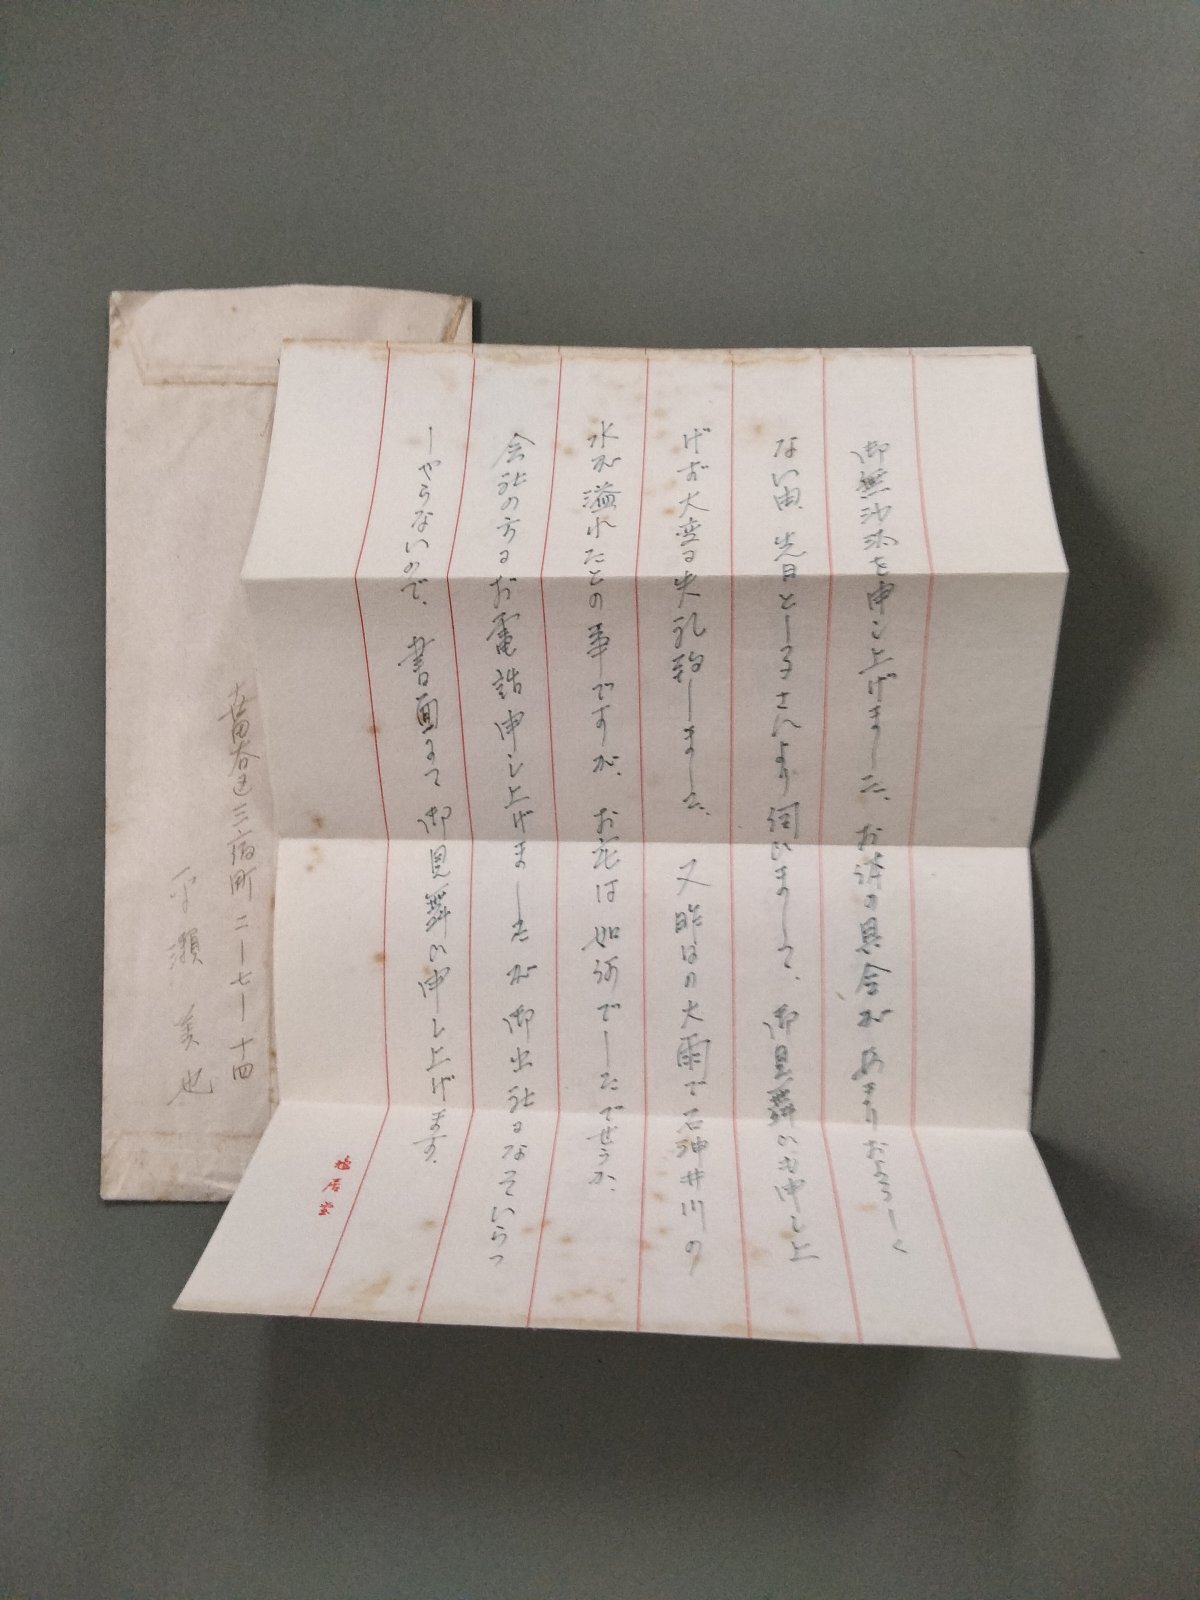 御無沙汰を申し上げました。お体の具合があまりおよろしく
ない由、先日としるさんより伺いまして、御見舞いも申し上
げず大変に失礼致しました。又昨日の大雨で石神井川の
水が溢れたとの事ですが、お宅は如何でしたでせうか。
会社の方にお電話申し上げましたが御出社になつていらつ
しやらないので、書面にて御見舞い申し上げます。
鳩居堂
世田谷区三宿町二ー七ー十四
平瀬美也